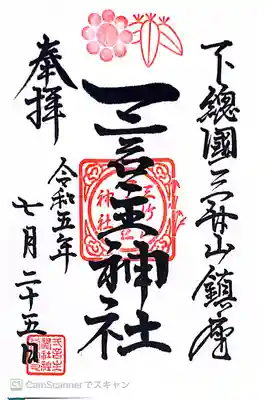 下總國三竹山鎮座
一言主神社
奉拝
令和五年
七月二十五日
CS CamScannerでスキャン